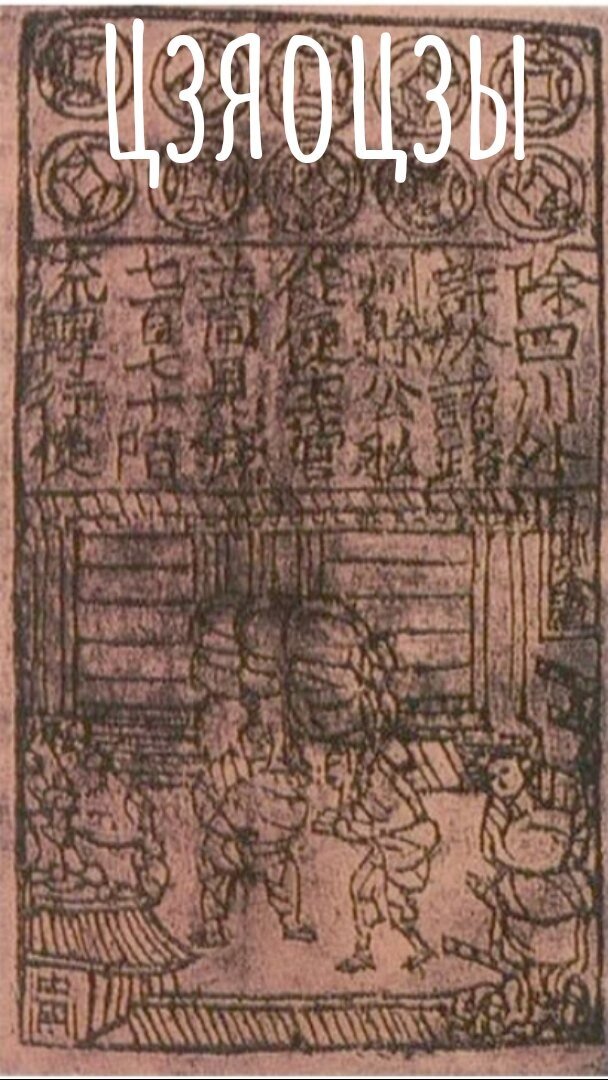 цзяоцзы
除四川外
許於諸路
州縣公私
從便主管
並同見錢
七百七十陌
流轉行使